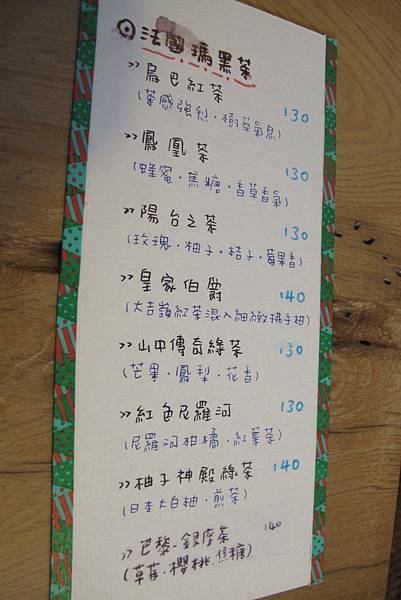 ⊙法國瑪黑茶
>>烏巴紅茶 130
(茶感強烈．樹草氣息)
>>鳳凰茶 130
(蜂蜜．焦糖．香草香氣)
>>陽台之茶 130
(玫瑰．柚子．桔子．莓果香)
>>皇家伯爵 140
(大吉嶺紅茶混入細緻拂手柑)
>>山中傳奇綠茶 130
(芒果．鳳梨．花香)
>>紅色尼羅河 130
(尼羅河柑橘．紅葉茶)
>>柚子神殿綠茶 140
(日本大白柚．煎茶)
>>巴黎-銀座茶 140
(草莓．櫻桃．焦糖)